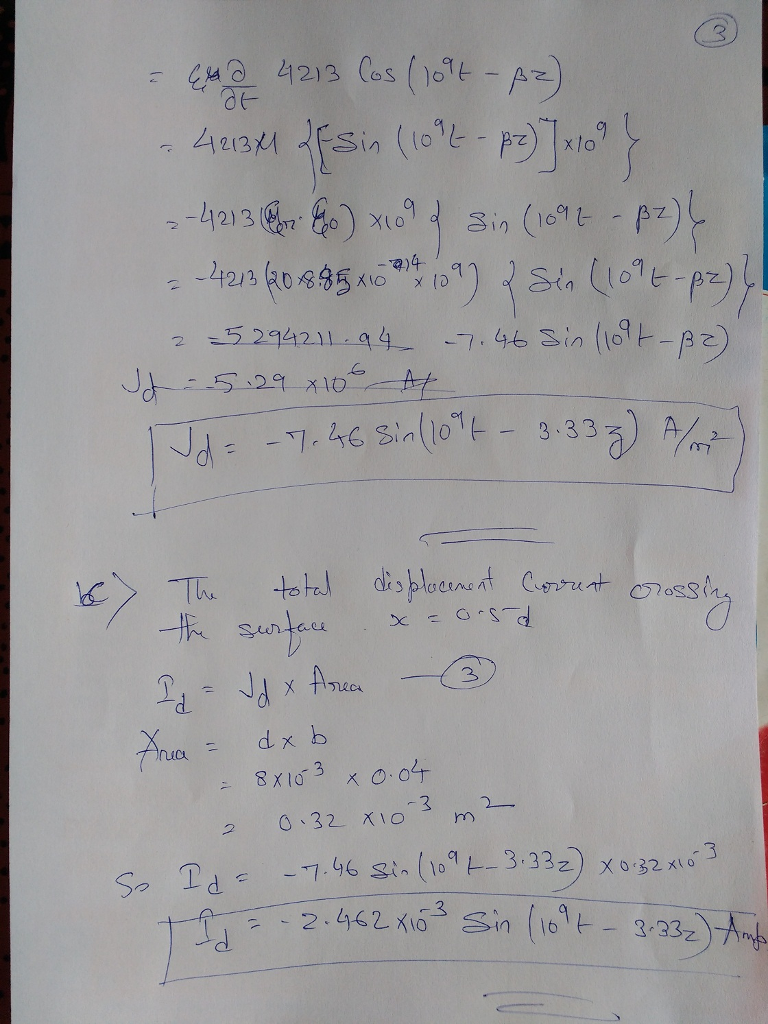 3
= ∂/∂t 4213 Cos (10⁹t - βz)
= 4213 {[-Sin (10⁹t - βz)] x10⁹ }
= -4213 ( ) x10⁹ { Sin (10⁹t - βz)}
= -4213 (20 x 8.85 x10⁻¹⁴ x 10⁹) { Sin (10⁹t - βz)}
= -5294211.94 -7.46 Sin (10⁹t - βz)
Jd = -5.29 x10⁶ A/
Jd = -7.46 Sin(10⁹t - 3.33z) A/m²
c) The total displacement Current crossing
the surface x = 0.5d
Id = Jd x Area — 3
Area = d x b
= 8x10⁻³ x 0.04
= 0.32 x10⁻³ m²
So Id = -7.46 Sin (10⁹t - 3.33z) x0.32x10⁻³
Id = -2.462 x10⁻³ Sin (10⁹t - 3.33z) Amp